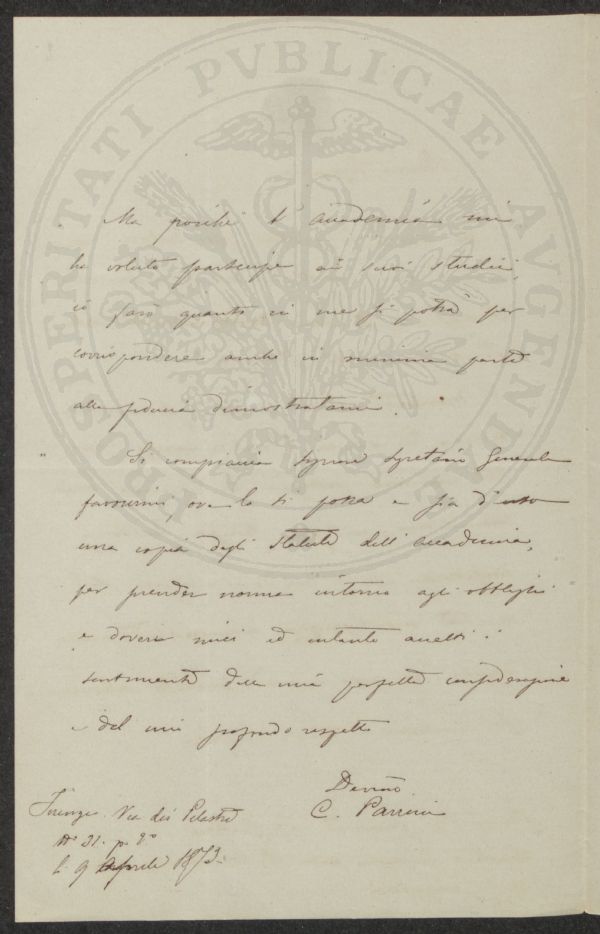 PROSPERITATI PVBLICAE AVGENDAE
Ma poichè l'accademia mi
ha voluto partecipe ai suoi studii
io farò quanto in me si potrà per
corrispondere anche in minima parte
alla fiducia dimostratami.
Si compiaccia Signore Segretario Generale
favorirmi, ove lo si possa e sia d'uso
una copia degli Statuti dell'Accademia,
per prender norma intorno agli obblighi
e doveri miei ed intanto accetti i
sentimenti della mia perfetta considerazione
e del mio profondo rispetto
Devmo
C. Parrini
Firenze. Via dei Pilastri
No 31. p. 2o
li 9 Aprile 1873.